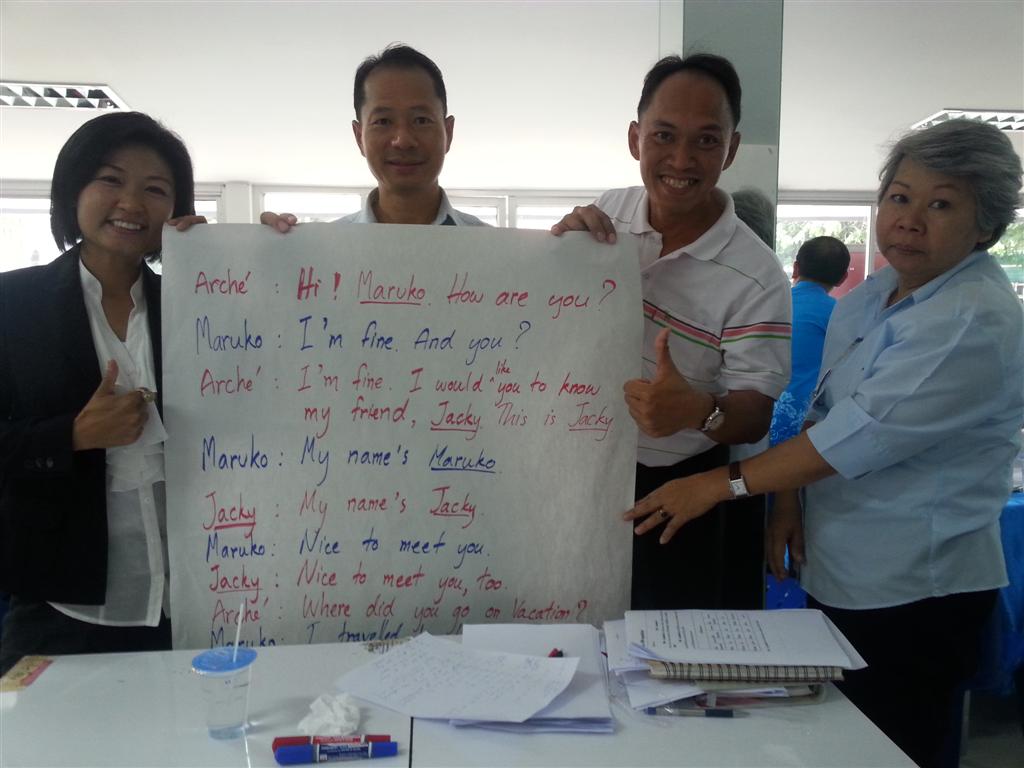 Arché : Hi! Maruko. How are you?
Maruko : I'm fine. And you?
Arché : I'm fine. I would like you to know
my friend, Jacky. This is Jacky
Maruko : My name's Maruko.
Jacky : My name's Jacky.
Maruko : Nice to meet you.
Jacky : Nice to meet you, too.
Arché : Where did you go on Vacation?
Maruko : I travelled